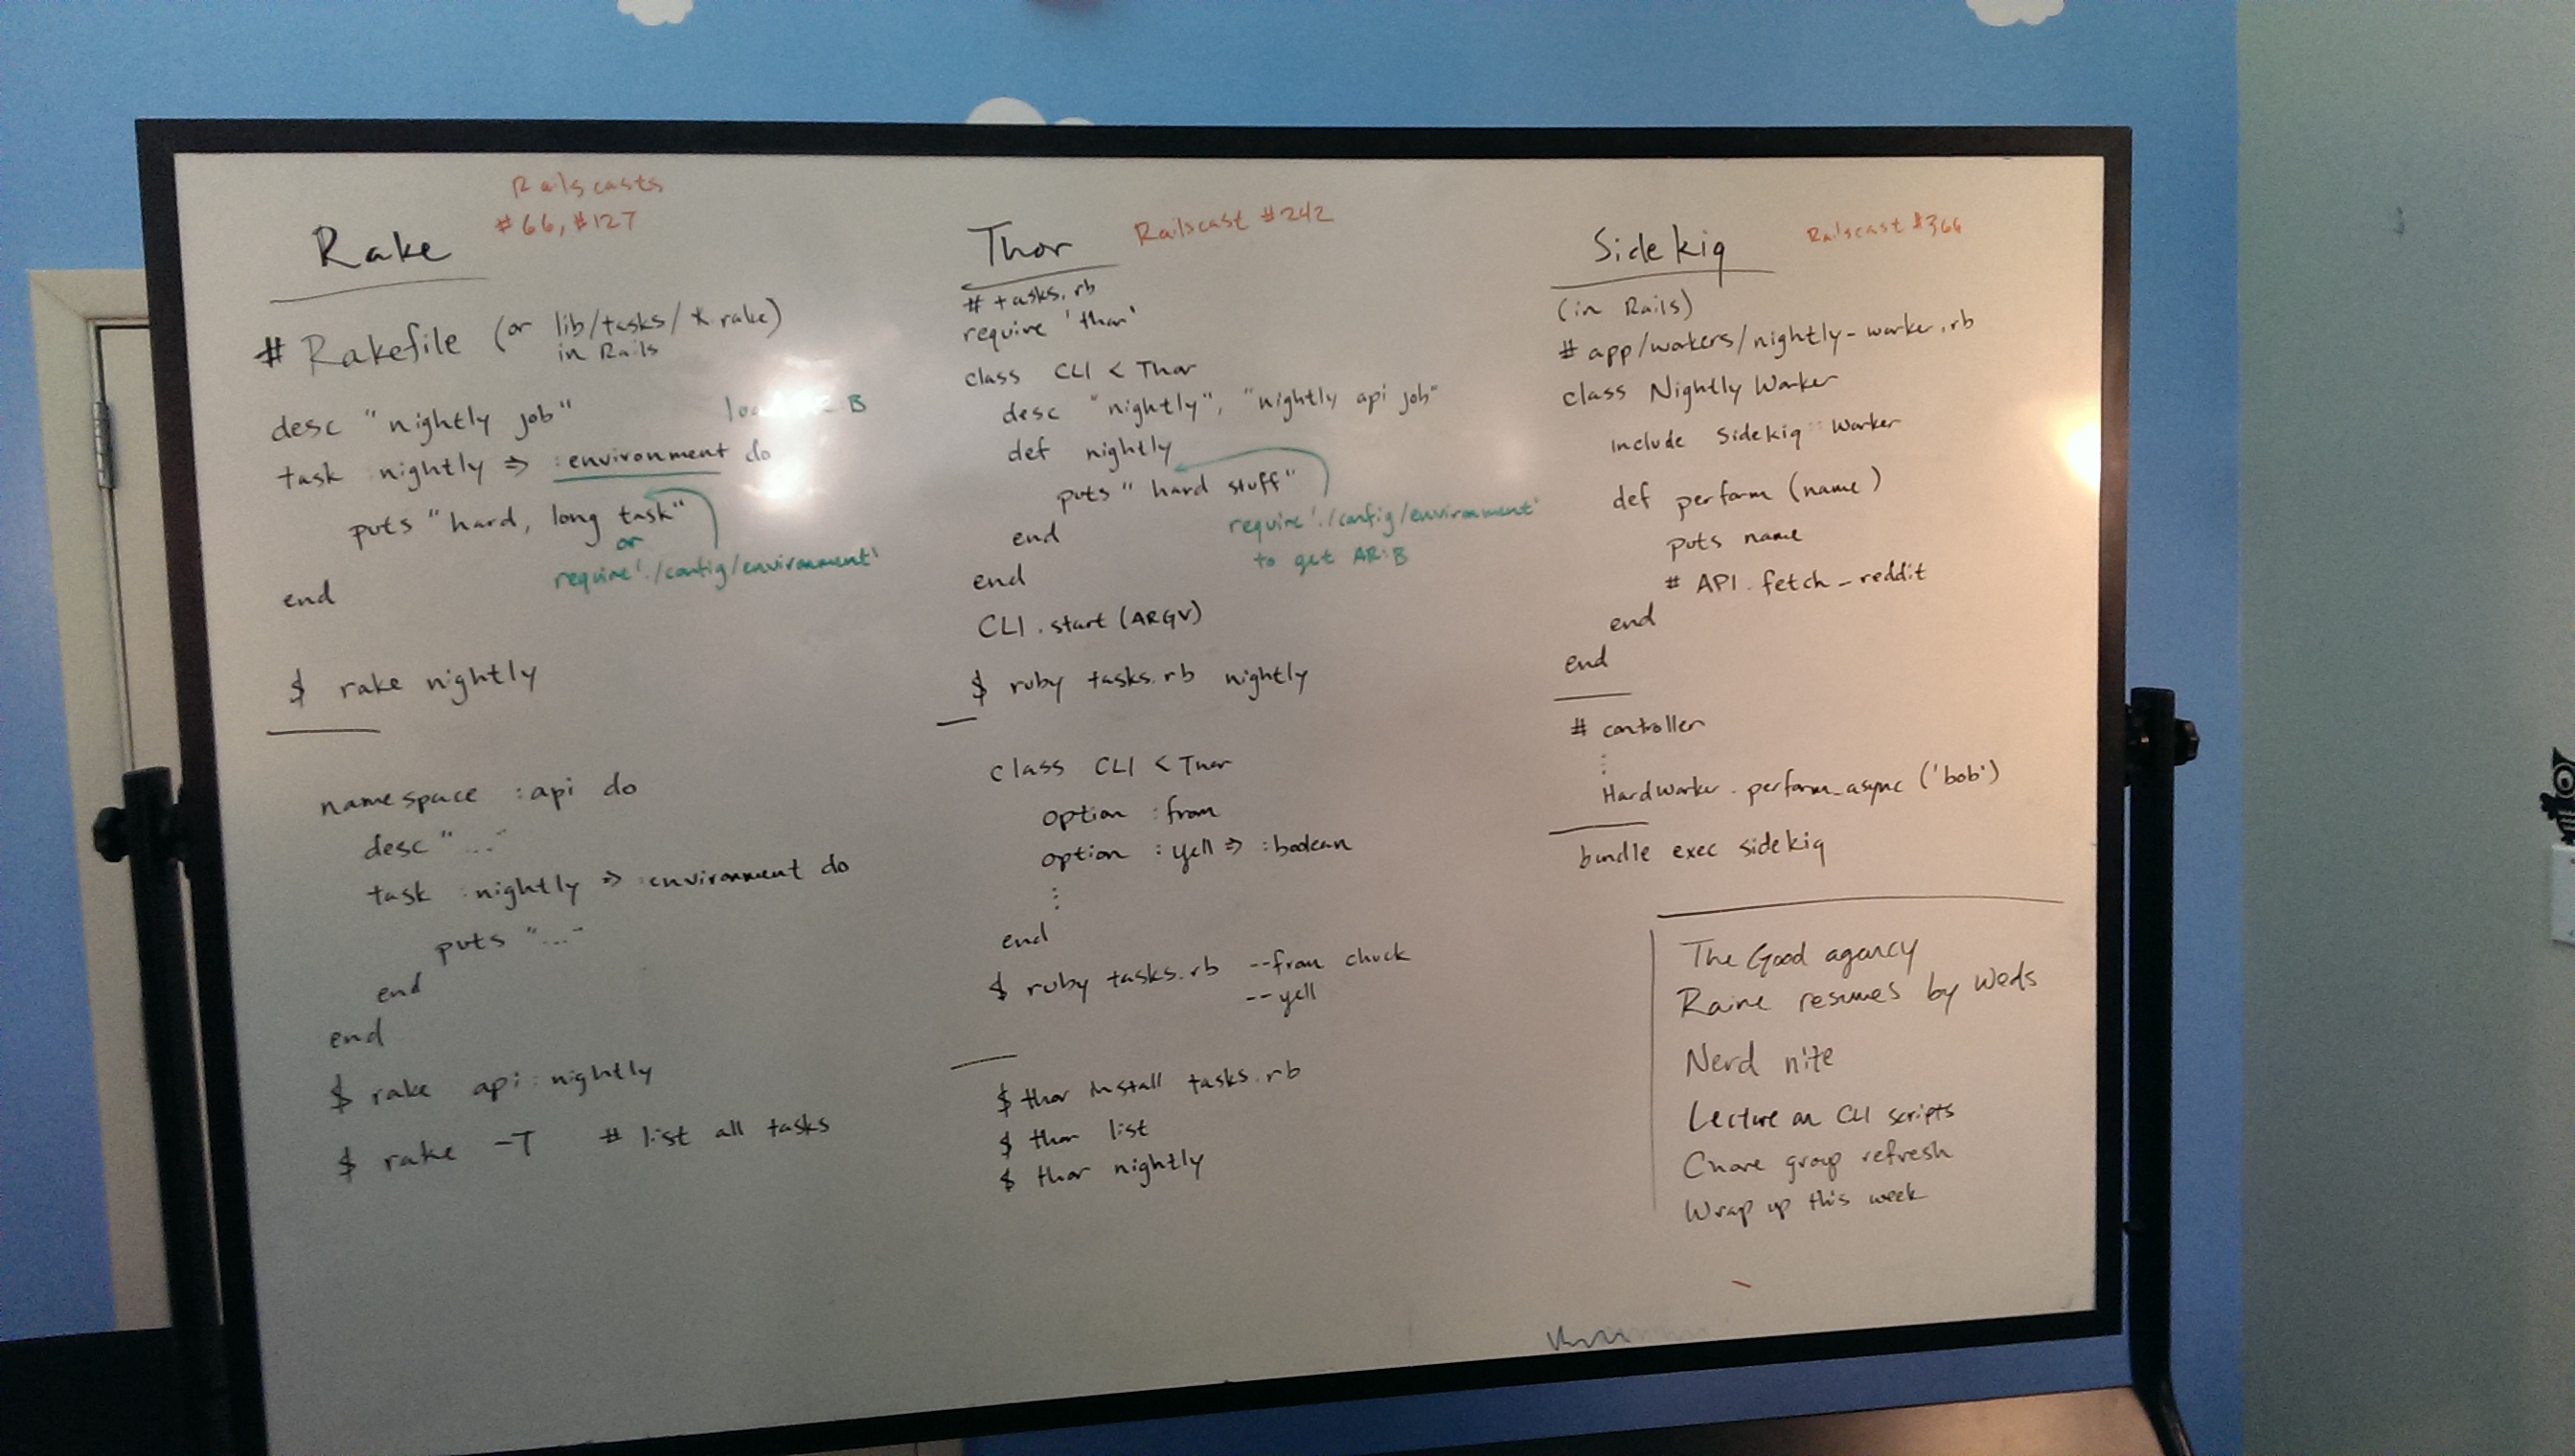 Railscasts
#66, #127
Rake
# Rakefile (or lib/tasks/*.rake)
in Rails
desc "nightly job"
B
task :nightly => :environment do
puts "hard, long task"
or
require './config/environment'
end
$ rake nightly
namespace :api do
desc "..."
task :nightly => :environment do
puts "..."
end
end
$ rake api:nightly
$ rake -T # list all tasks
Thor
Railscast #242
# tasks.rb
require 'thor'
class CLI < Thor
desc "nightly", "nightly api job"
def nightly
puts "hard stuff"
require './config/environment'
to get AR:B
end
end
CLI.start(ARGV)
$ ruby tasks.rb nightly
class CLI < Thor
option :from
option :yell => :boolean
⋮
end
$ ruby tasks.rb --from chuck
--yell
$ thor install tasks.rb
$ thor list
$ thor nightly
Sidekiq
Railscast #366
(in Rails)
# app/wokers/nightly-worker.rb
class Nightly Worker
include Sidekiq::Worker
def perform (name)
puts name
# API.fetch_reddit
end
end
# controller
⋮
HardWorker.perform_async ('bob')
bundle exec sidekiq
The Good agency
Raine resumes by Weds
Nerd nite
Lecture on CLI scripts
Chore group refresh
Wrap up this week